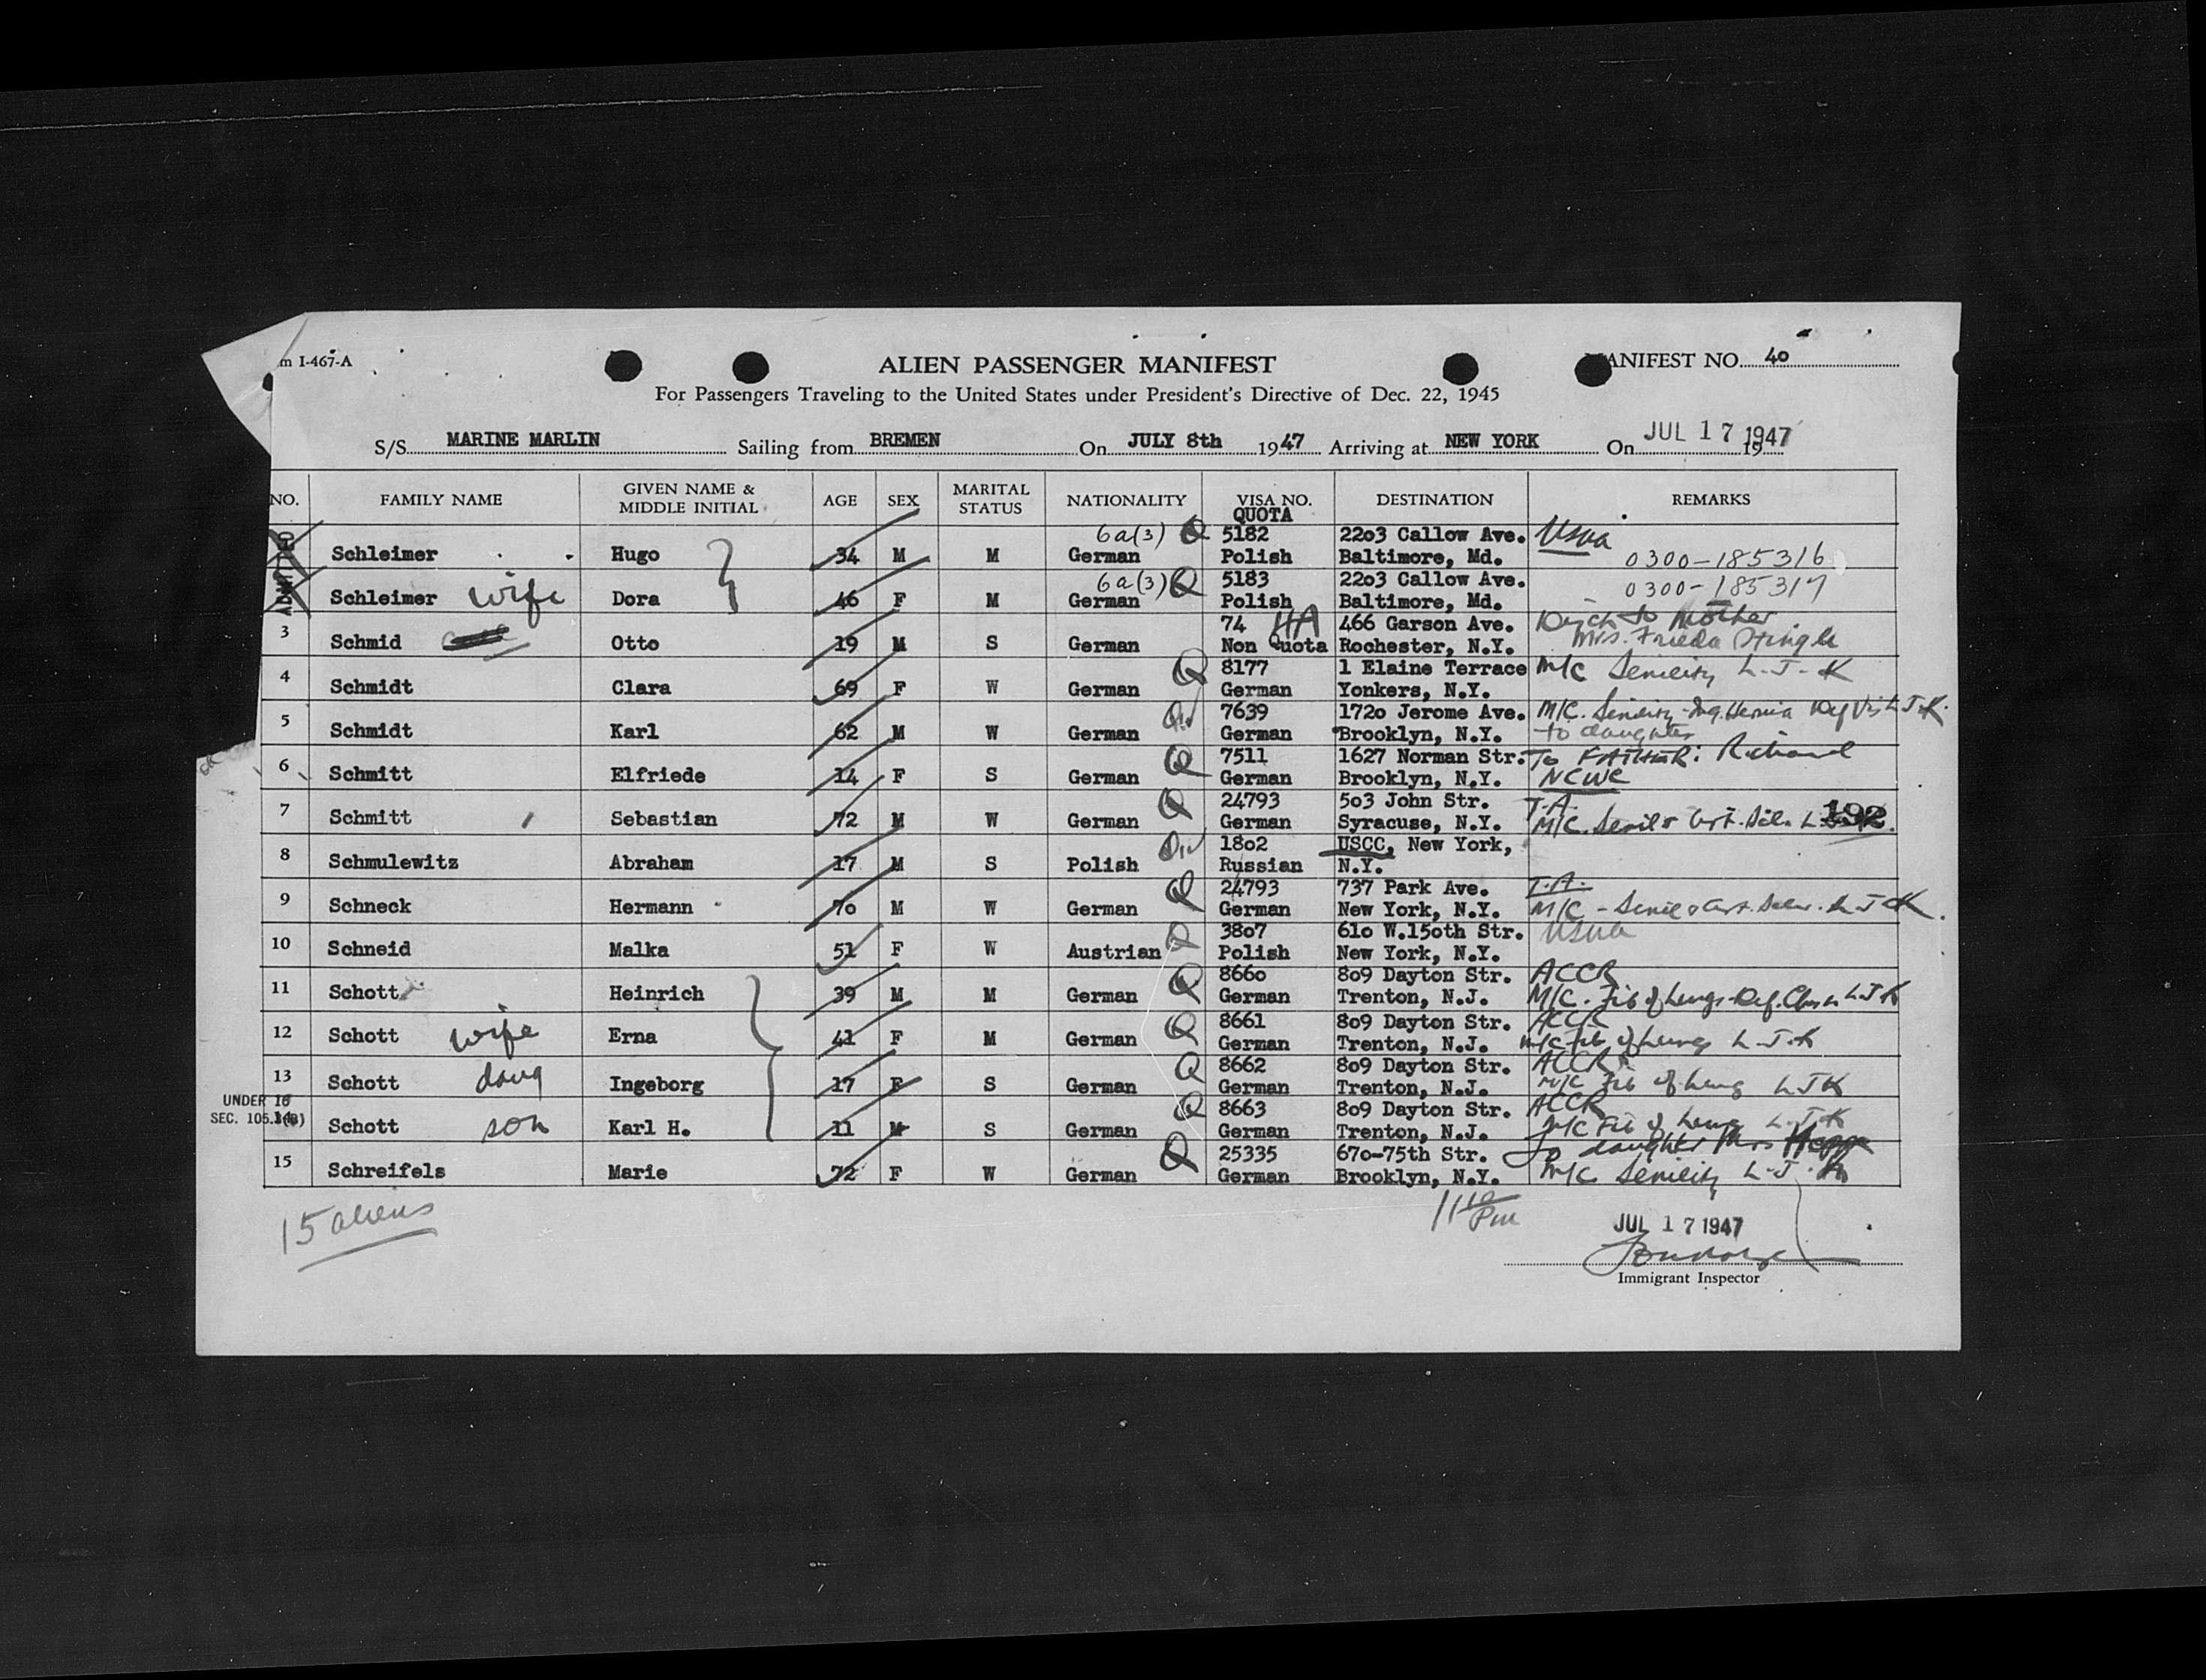 m I-467-A
ALIEN PASSENGER MANIFEST
ANIFEST NO. 40
For Passengers Traveling to the United States under President's Directive of Dec. 22, 1945
S/S MARINE MARLIN Sailing from BREMEN On JULY 8th 1947 Arriving at NEW YORK On JUL 17 1947 19
NO. FAMILY NAME GIVEN NAME & MIDDLE INITIAL AGE SEX MARITAL STATUS NATIONALITY VISA NO. QUOTA DESTINATION REMARKS
ADMITTED
6a(3) Q 5182 2203 Callow Ave. Usna
Schleimer Hugo 34 M M German Polish Baltimore, Md. 0300-185316
6a(3) Q 5183 2203 Callow Ave. 0300-185317
Schleimer wife Dora 46 F M German Polish Baltimore, Md.
3 74 466 Garson Ave. to Mother
Schmid Otto 19 M S German Non Quota Rochester, N.Y. Mrs. Frieda
4 Q 8177 1 Elaine Terrace M/C Senility L-J-K
Schmidt Clara 69 F W German German Yonkers, N.Y.
5 7639 1720 Jerome Ave. M/C. Senility Hernia L J K
Schmidt Karl 62 M W German German Brooklyn, N.Y. to daughter
6 Q 7511 1627 Norman Str. To FATHER: Richard
Schmitt Elfriede 14 F S German German Brooklyn, N.Y. NCWC
7 Q 24793 503 John Str. T.A. 192
Schmitt Sebastian 72 M W German German Syracuse, N.Y. M/C.
8 1802 USCC, New York,
Schmulewitz Abraham 17 M S Polish Russian N.Y.
9 Q 24793 737 Park Ave. T.A.
Schneck Hermann 70 M W German German New York, N.Y. M/C - L J K
10 Q 3807 610 W.150th Str. Usna
Schneid Malka 51 F W Austrian Polish New York, N.Y.
11 Q 8660 809 Dayton Str. ACCR
Schott Heinrich 39 M M German German Trenton, N.J. M/C. Fib of Lungs L J K
12 Q 8661 809 Dayton Str. ACCR
Schott wife Erna 41 F M German German Trenton, N.J. M/C Fib of Lungs L-J-K
13 Q 8662 809 Dayton Str. ACCR
Schott daug Ingeborg 17 F S German German Trenton, N.J. M/C Fib of Lung L J K
UNDER 16
SEC. 105.3(B) 14 Q 8663 809 Dayton Str. ACCR
Schott son Karl H. 11 M S German German Trenton, N.J. M/C Fib of Lung L-J-K
15 Q 25335 670-75th Str. To daughter Mrs
Schreifels Marie 72 F W German German Brooklyn, N.Y. M/C Senility L-J-K
15 aliens
JUL 17 1947
Immigrant Inspector